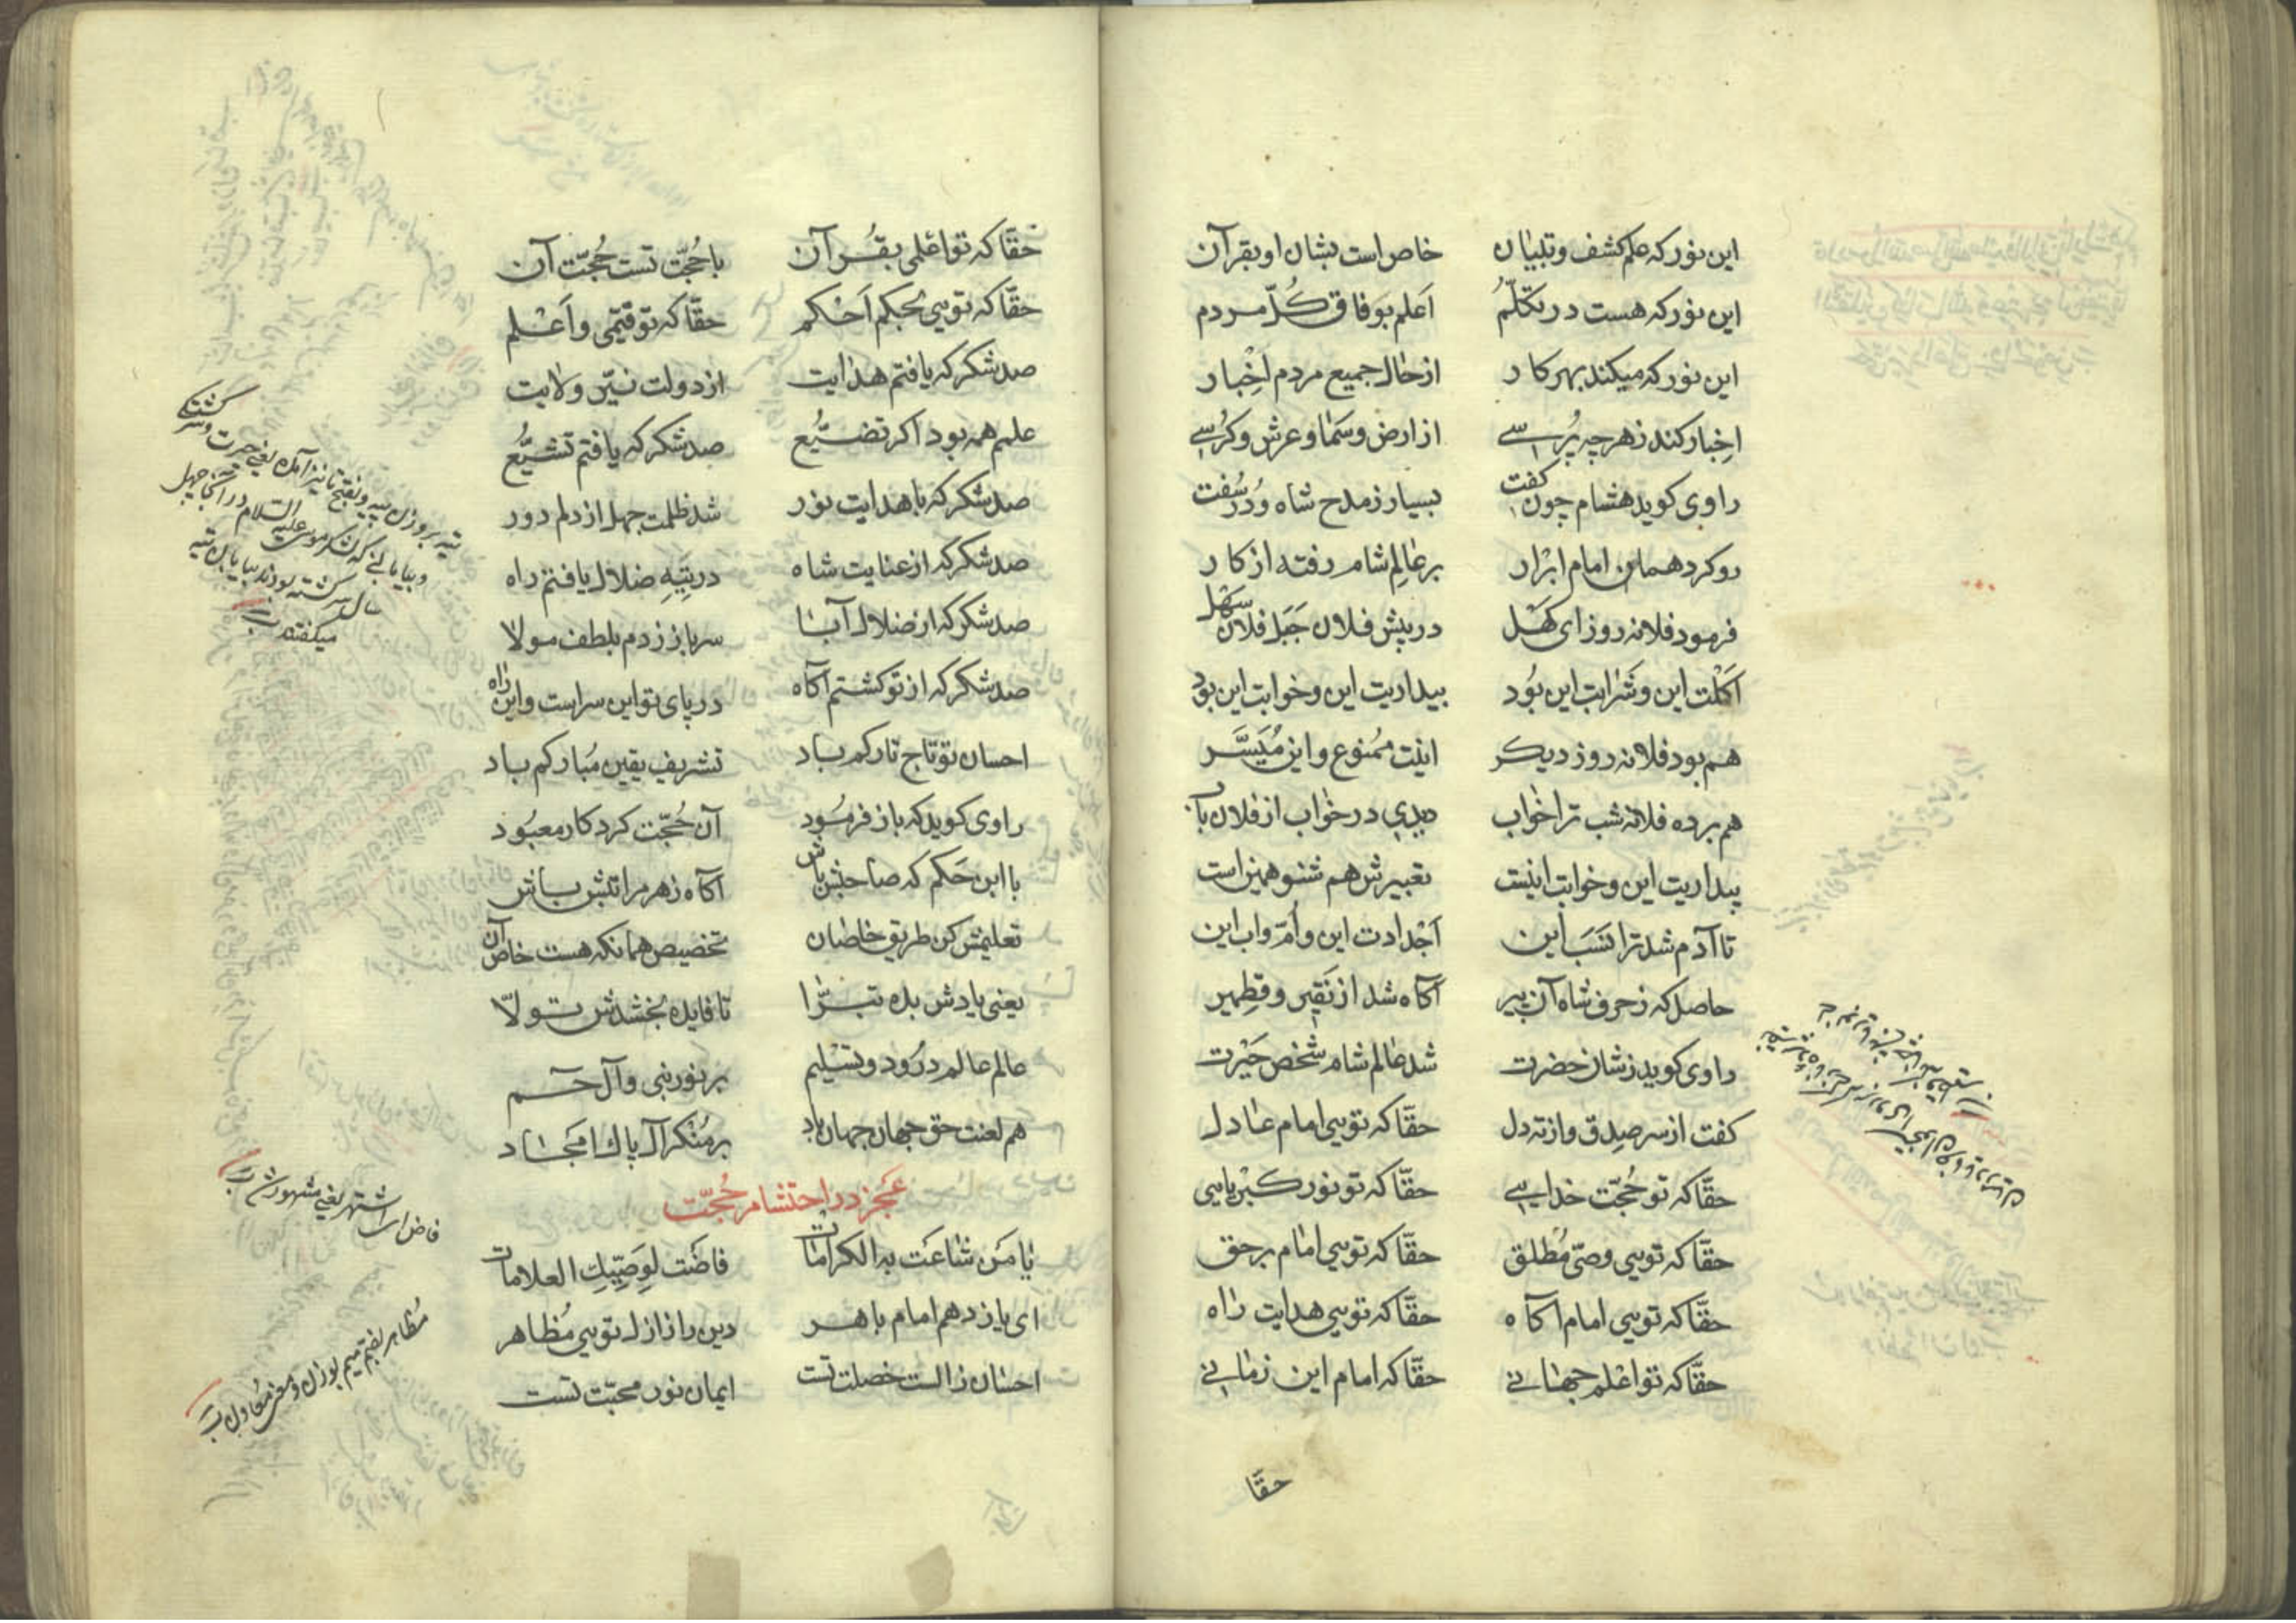 این نور که علم کشف و تبیان خاص است بشان او بقرآن
این نور که هست در تکلّم اَعلم بوفاق کُلّ مردم
این نور که میکند بهر کار از حال جمیع مردم اِخْبار
اِخبار کند زهر چه پُرسے از ارض و سَما و عرش و کُرسے
راوی کوید هشام چون کفت بسیار ز مدح شاه و دُر سُفت
رو کرد همان امام ابْرار بر عٰالِم شام رفته از کار
فرمود فلانه روز ای کَهْل در پیش فلان جَبَل فلان سَهْل
اَکْلَت این و شَرابت این بُود بیداریت این و خوابت این بود
هم بود فلانه روز دیکر اینت ممُنوع و این مُیَسَّر
هم برده فلانه شب ترا خٰواب دیدی در خٰواب از فلان باب
بیداریت این و خوابت اینست تعبیرش هم شنو همین است
تا آدم شد ترا نَسَب این اَجْدادت این و اُمّ و اب این
حاصل که ز حرف شاه آن پیر آکاه شد از نَقیر و قطمیر
راوی کوید ز شان حضرت شد عٰالم شام شخص حَیْرت
کفت از سر صِدق و از ته دل حقّا که تویی امام عٰادل
حقّا که تو حُجّت خدایے حقّا که تو نور کبْریایی
حقّا که تویی وصیّ مُطلق حقّا که تویی امام برحق
حقّا که تویی امام اکاه حقّا که تویی هدایت رٰاه
حقّا که تو اعْلم جهٰانے حقّا که امام این زمٰانے
حقّا
حقّا که تو اعْلمی بقُرآن با حُجّت تست حُجّت آن
حقّا که تویی بحکم اَحْکم حقّا که تو قیّمی و اَعْلم
صد شکر که یافتم هدٰایت از دولت نیّر ولایت
علمم همه بود اکر تضیُّع صد شکر که یافتم تشیُّع
صد شکر که با هدایت نور شد ظلمت جهل از دلم دور
صد شکر که از عنایت شاه در تیهِ ضلال یافتم راه
صد شکر که از ضلال آبا سر باز زدم بلطف مولا
صد شکر که از تو کشتم آکاه در پای تو این سراست و این رٰاه
احسان تو تاج تارکم باد تشریف یقین مُبارکم باد
راوی کوید که باز فرمُود آن حُجّت کردکار معبُود
با ابن حَکم که صاحبش باش آکاه زهر مراتبش باش
تعلیمش کن طریق خاصان تخصیص همانکه هست خاص آن
یعنی یادش بده تبرّٰا تا فایده بخشدش تولاّ
عالم عالم دُرود و تسْلیم بر نور نبی و آل حم
هم لعنت حق جهان جهان باد بر مُنْکر آل پاک امَجٰاد
عَجز در احتشام حُجّت
یٰا مَن شاعَت به الکرامات فاضَت لِوَصِیِّكِ العلامات
ای یازدهم امام باهر دین را ز ازل تویی مُظاهر
احسٰان ز الست خصلت تست ایمان نور محبّت تست
تیه بر وزن پیه و بفتح تا نیز آمده یعنی حیرت و سرکشتکی
و بیابانی که لشکر موسی علیه السلام در انجا چهل
سال سرکشته بودند بیابان تیه
میکفتند
فاض ای اشتهر یعنی مشهور شد
مُظاهر بضم میم بوزن و معنی مُعاون